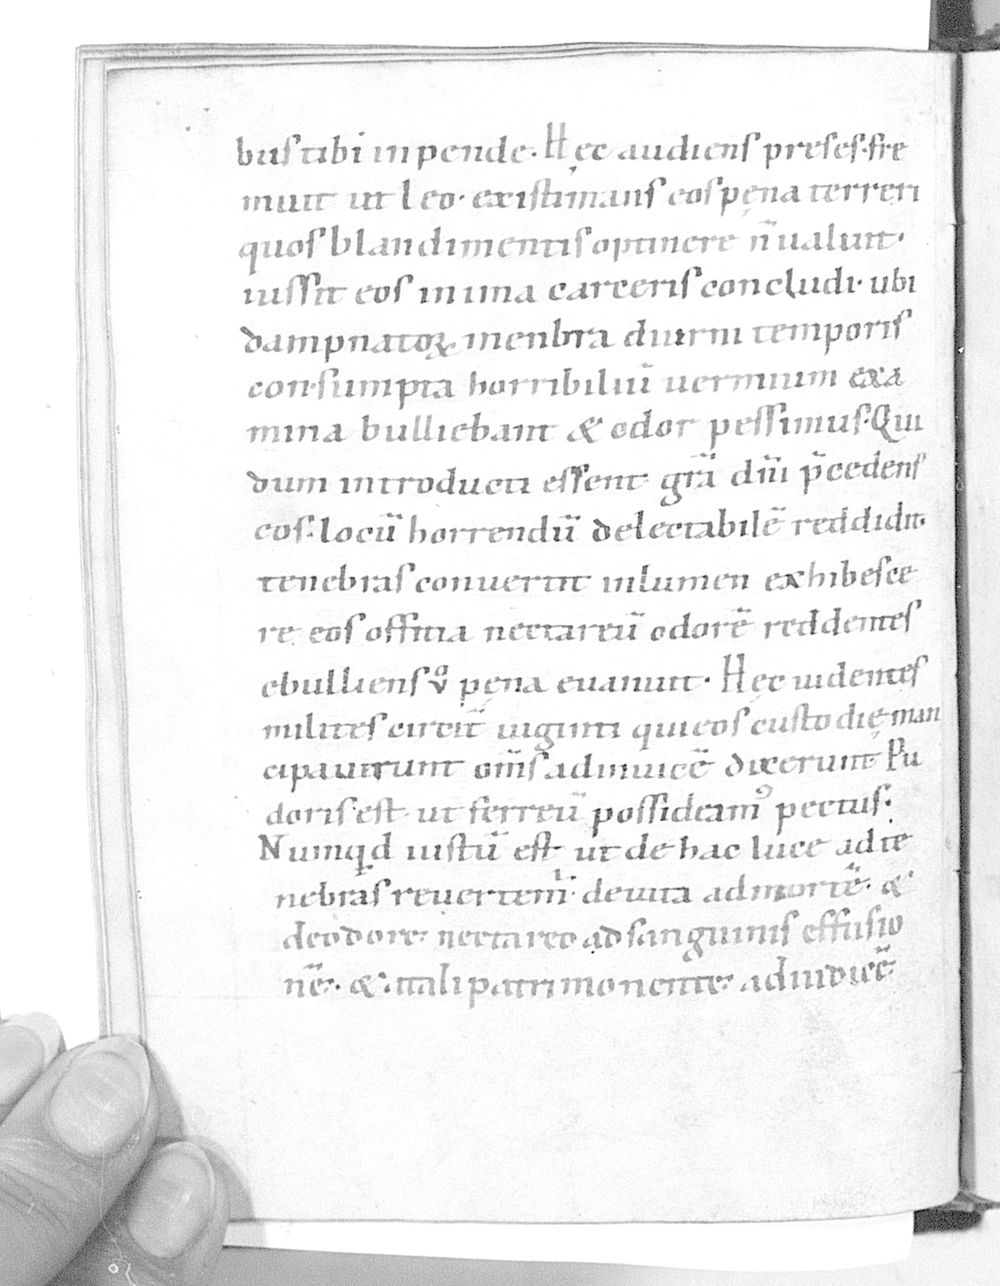 bus tibi inpende. Hęc audiens preses. fre
muit ut leo. existimans eos pęna terreri
quos blandimentis optinere n̄ ualuit.
iussit eos in ima carceris concludi. ubi
dampnatoꝝ menbra diuirni temporis
consumpta horribiliū uermium exa
mina bulliebant & odor pessimus. Qui
dum introducti essent grā dnī p̄cedens
eos. locū horrendū delectabilē reddidit.
tenebras conuertit in lumen exhibesce
re eos offitia nectareū odorē reddentes
ebulliens v̊ pęna euanuit. Hęc uidentes
milites circit̄ uiginti qui eos custodię man
cipauerunt om̄s ad inuicē dixerunt Pu
doris est ut ferreū possideamꝰ pectus.
Numqd iustū est ut de hac luce ad te
nebras reuertem̄. de uita ad mortē. &
de odore nectareo ad sanguinis effusio
nē. & tali patrimonente ad iudicē.